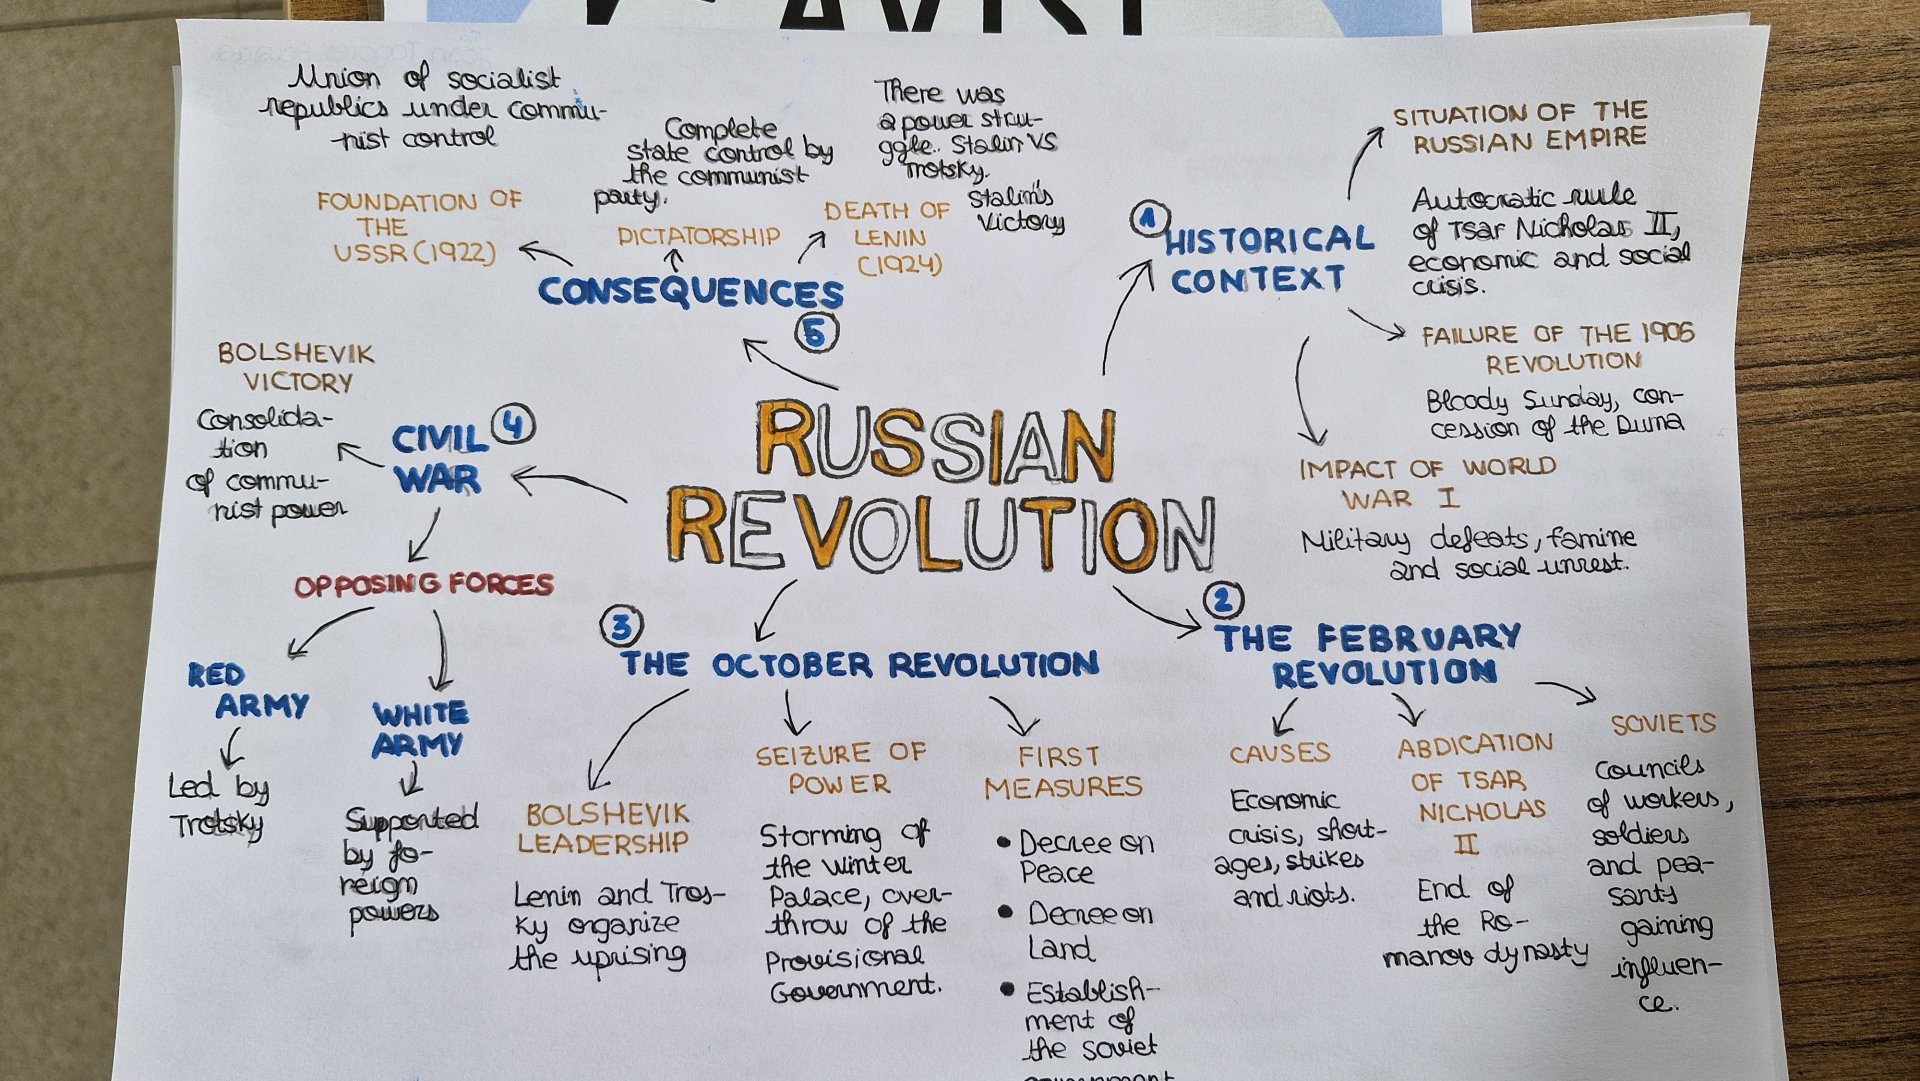 RUSSIAN
REVOLUTION
1
HISTORICAL
CONTEXT
SITUATION OF THE
RUSSIAN EMPIRE
Autocratic rule
of Tsar Nicholas II,
economic and social
crisis.
FAILURE OF THE 1905
REVOLUTION
Bloody Sunday, con-
cession of the Duma
IMPACT OF WORLD
WAR I
Military defeats, famine
and social unrest.
2
THE FEBRUARY
REVOLUTION
CAUSES
Economic
crisis, short-
ages, strikes
and riots.
ABDICATION
OF TSAR
NICHOLAS
II
End of
the Ro-
manov dynasty
SOVIETS
Councils
of workers,
soldiers
and pea-
sants
gaining
influen-
ce.
3
THE OCTOBER REVOLUTION
BOLSHEVIK
LEADERSHIP
Lenin and Tros-
ky organize
the uprising
SEIZURE OF
POWER
Storming of
the Winter
Palace, over-
throw of the
Provisional
Government.
FIRST
MEASURES
• Decree on
Peace
• Decree on
Land
• Establish-
ment of
the soviet
4
CIVIL
WAR
BOLSHEVIK
VICTORY
Consolida-
tion
of commu-
nist power
OPPOSING FORCES
RED
ARMY
Led by
Trotsky
WHITE
ARMY
Supported
by fo-
reign
powers
5
CONSEQUENCES
FOUNDATION OF
THE
USSR (1922)
Union of socialist
republics under commu-
nist control
DICTATORSHIP
Complete
state control by
the communist
party.
DEATH OF
LENIN
(1924)
There was
a power stru-
ggle. Stalin VS
Trotsky.
Stalin's
Victory